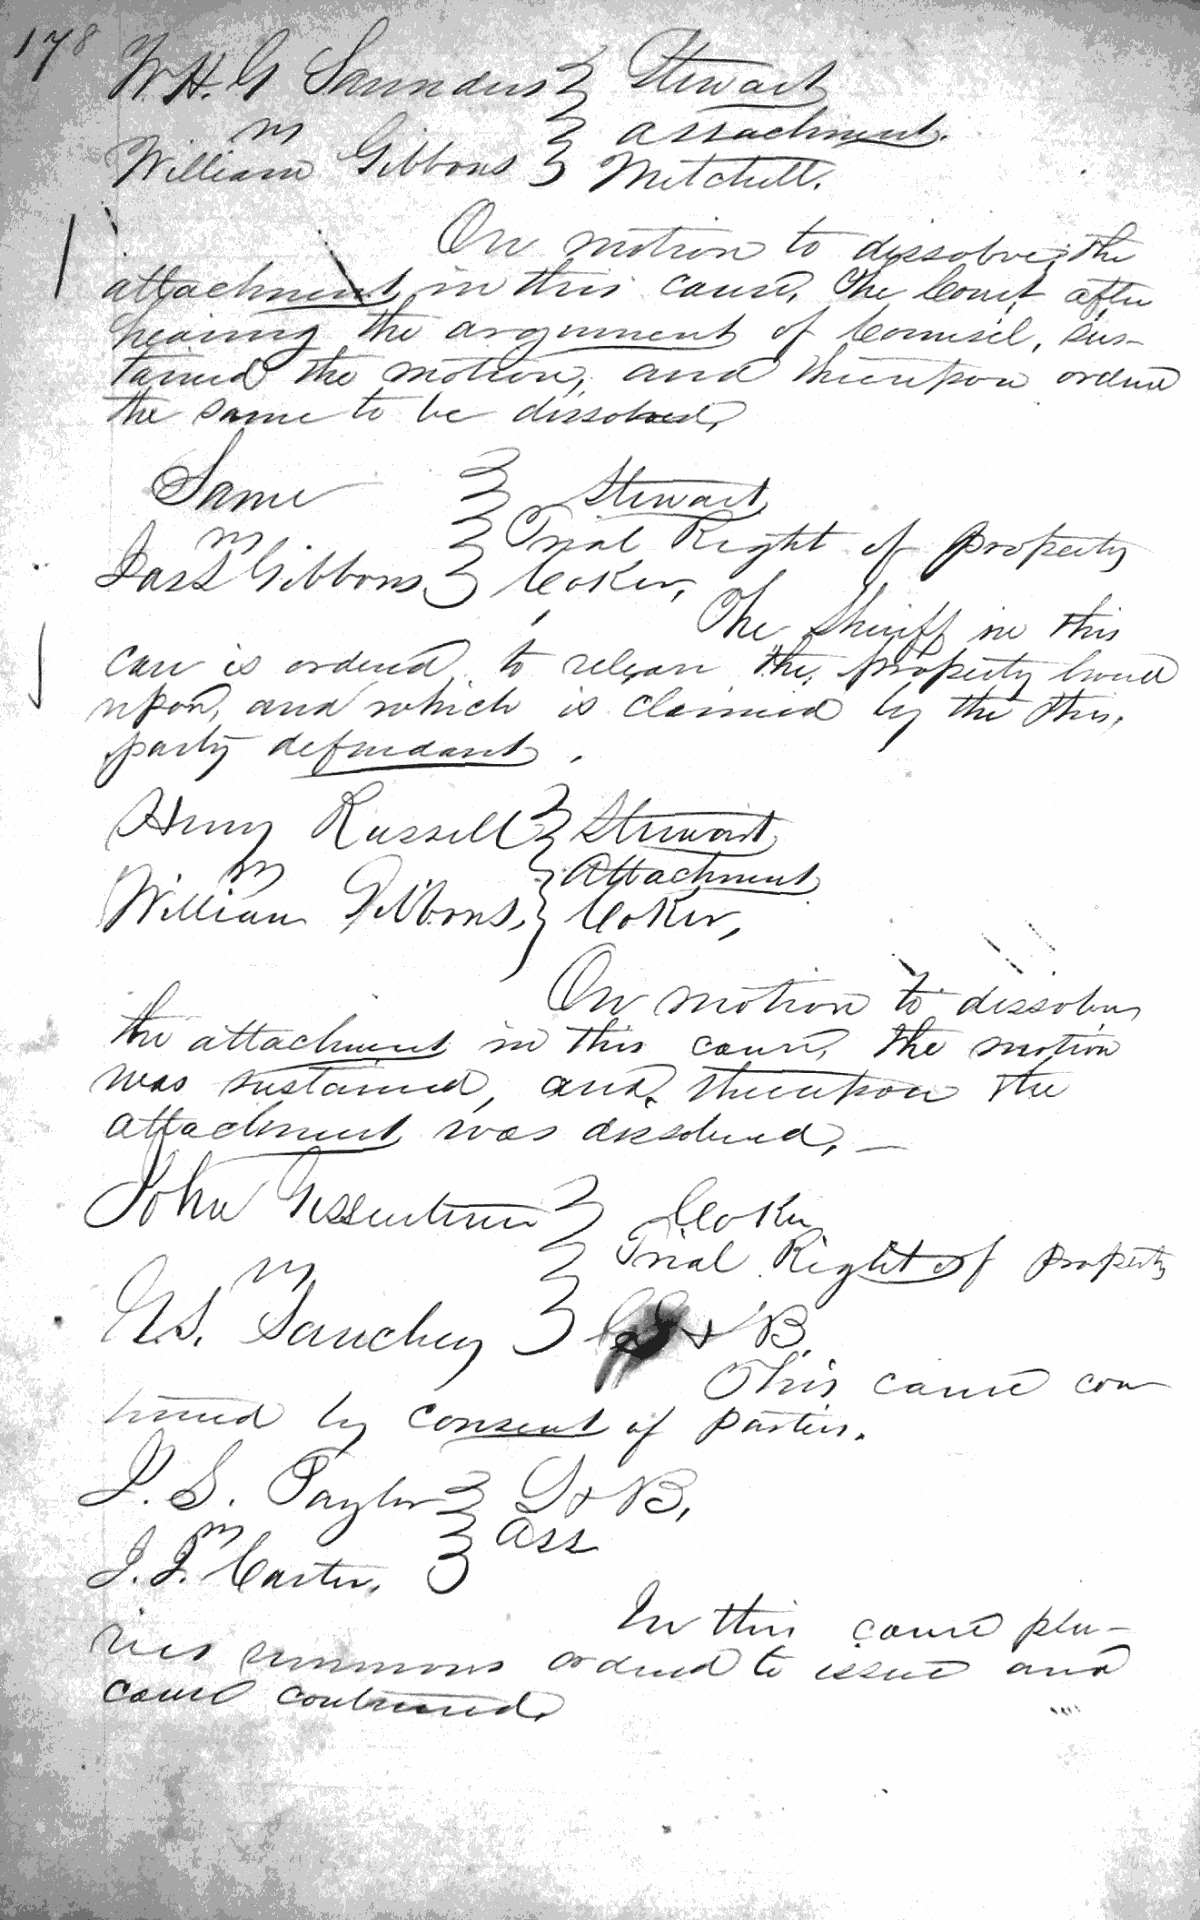 178
W. H. G Saunders } Stewart
vs } attachment.
William Gibbons } Mitchell.
On motion to dissolve, the
attachment in this cause, the Court after
hearing the argument of Counsel, sus-
tained the motion, and thereupon ordered
the same to be dissolved,
Same } Stewart
vs } Trial Right of property
Gibbons } Coker,
The Sheriff in this
case is ordered to release the property levied
upon, and which is claimed by the
party defendant.
Henry Russell } Stewart
vs } Attachment
William Gibbons, } Coker,
On motion to dissolve
the attachment in this cause, the motion
was sustained, and thereupon the
attachment was dissolved, —
John } Coker
vs } Trial Right of property
E. S. Sanchez } & B.
This cause con
tinued by consent of parties.
J. S. Taylor } G & B,
vs } ass
J. J. Carter. }
In this cause plu-
ries summons ordered to issue and
cause continued.